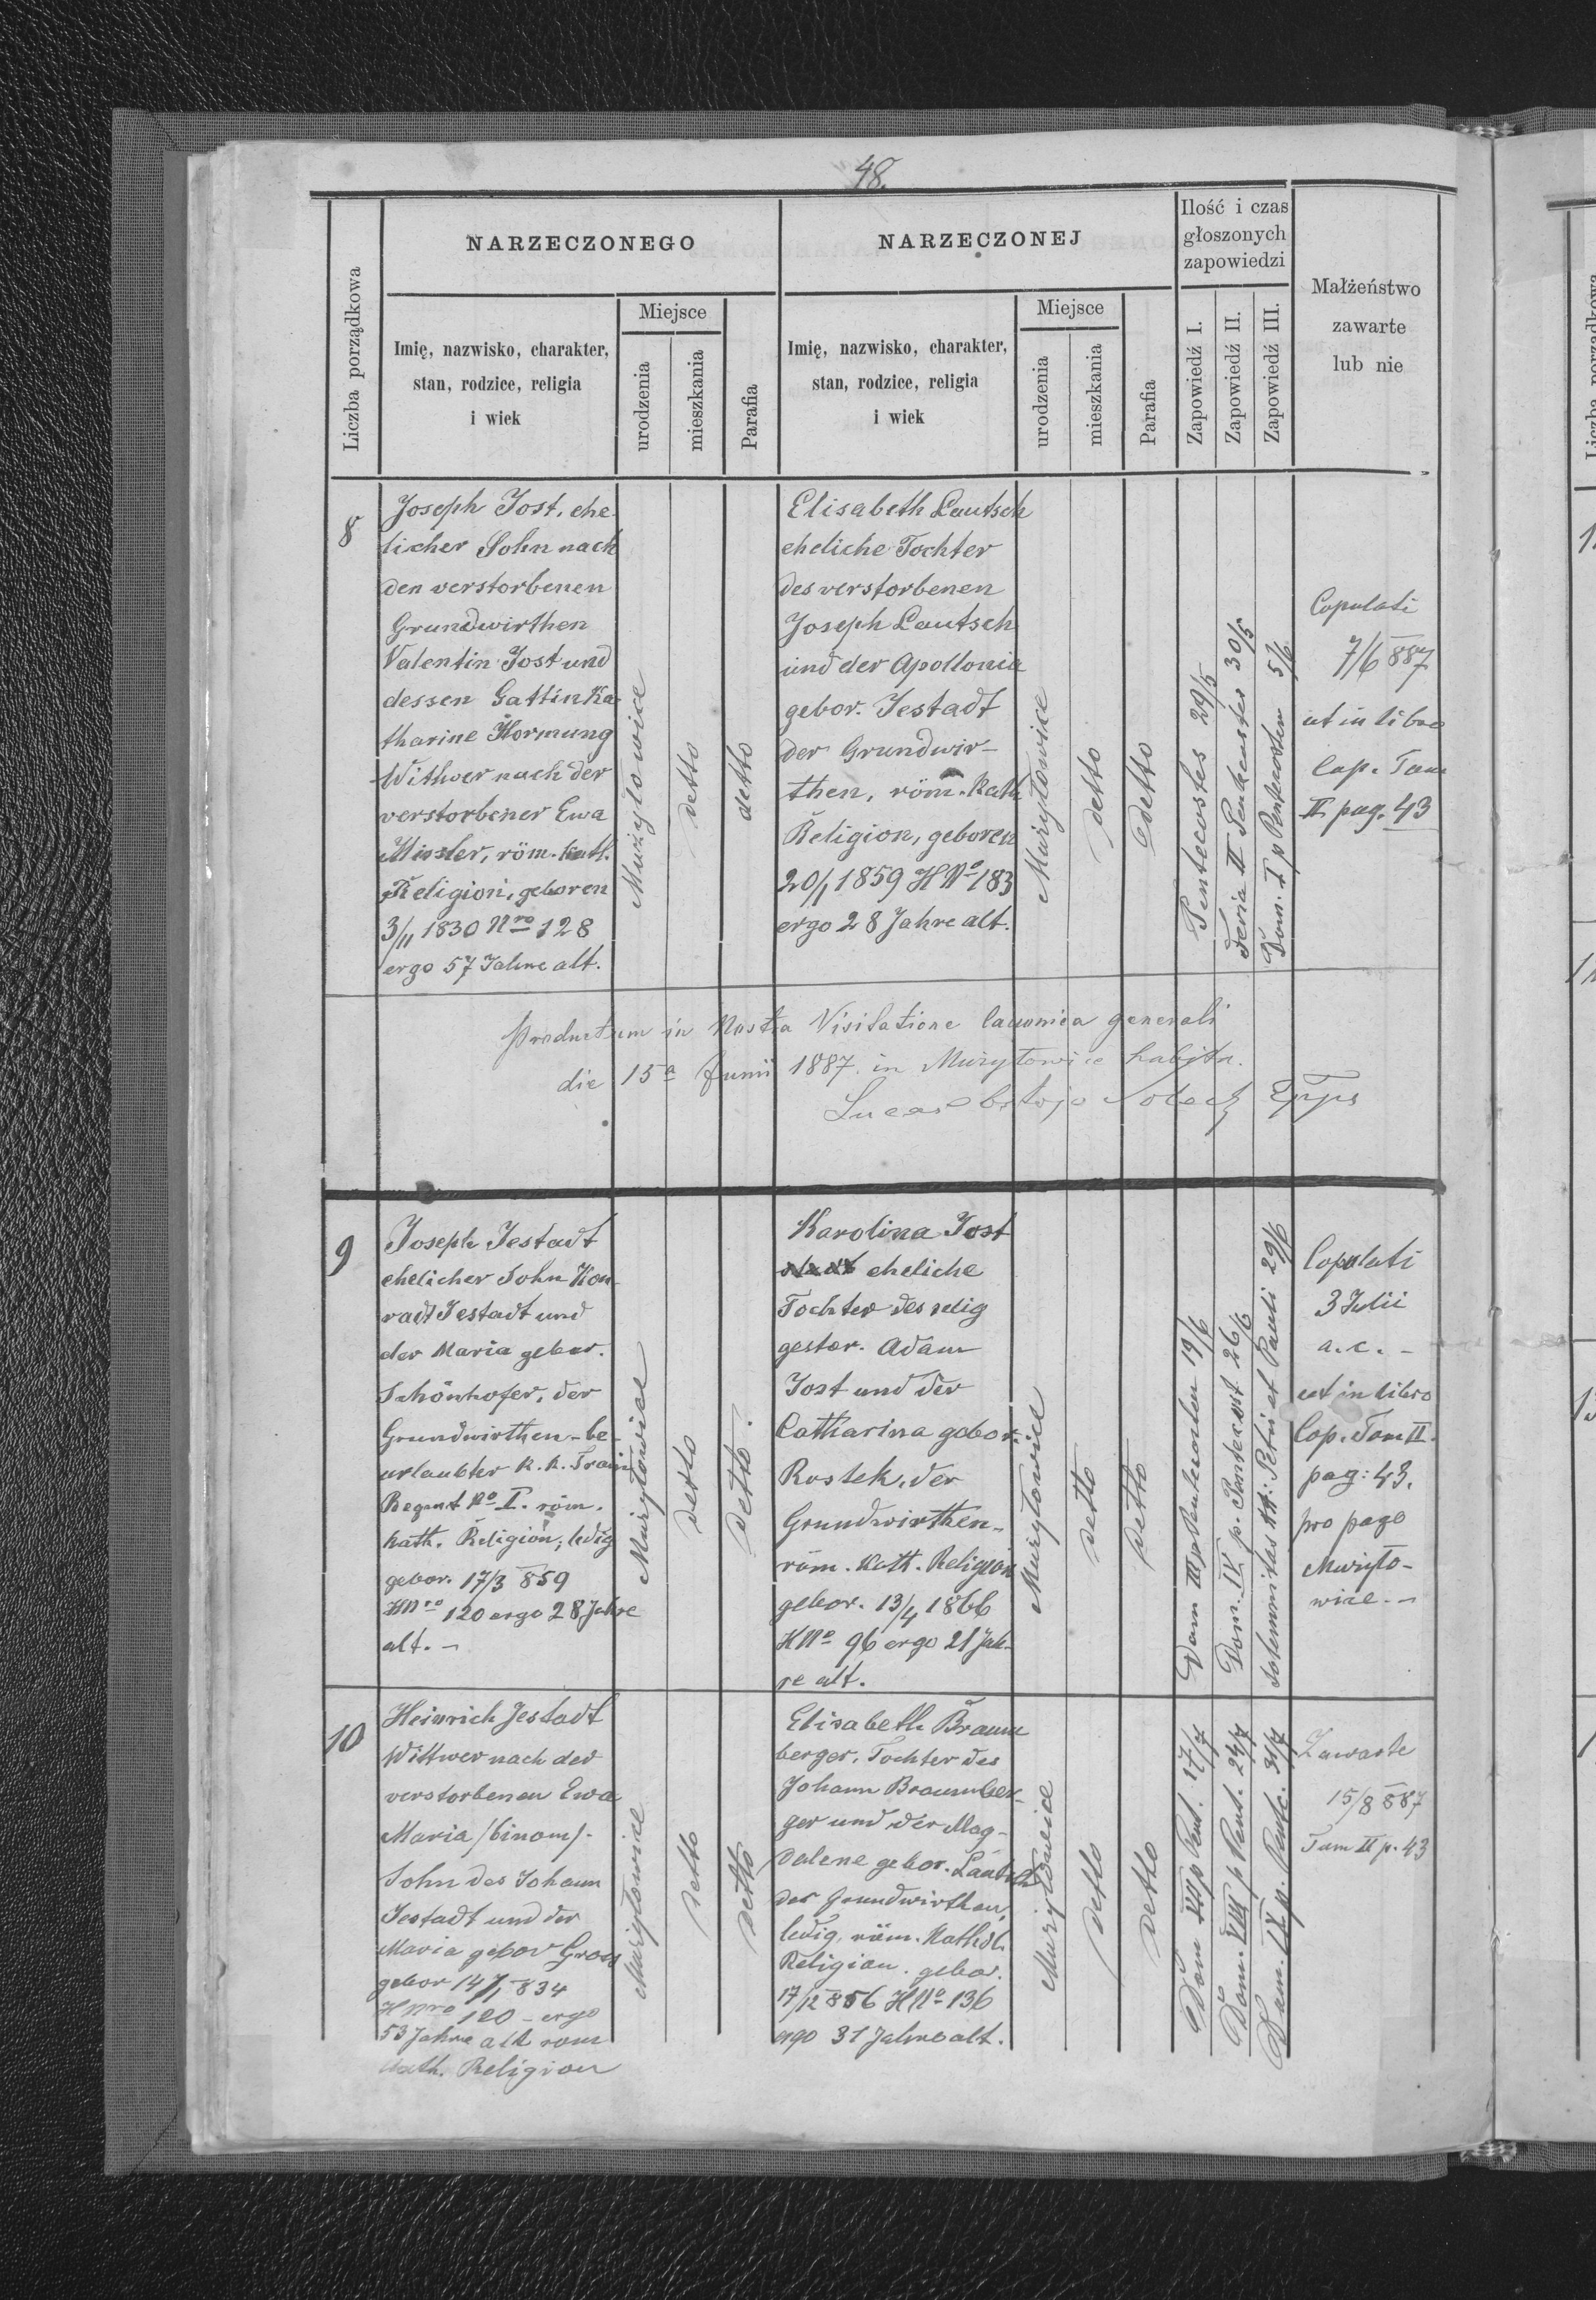 48.
Liczba porządkowa
NARZECZONEGO
NARZECZONEJ
Ilość i czas
głoszonych
zapowiedzi
Małżeństwo
zawarte
lub nie
Imię, nazwisko, charakter,
stan, rodzice, religia
i wiek
Miejsce
urodzenia
mieszkania
Parafia
Imię, nazwisko, charakter,
stan, rodzice, religia
i wiek
Miejsce
urodzenia
mieszkania
Parafia
Zapowiedź I.
Zapowiedź II.
Zapowiedź III.
8
Joseph Jost, ehe-
licher Sohn nach
den verstorbenen
Grundwirthen
Valentin Jost und
dessen Gattin Ka-
tharine Hormung
Withwer nach der
verstorbener Ewa
Missler, röm. kath.
Religion, geboren
3/11 1830 Nro 128
ergo 57 Jahre alt.
Mużyłowice
detto
detto
Elisabeth Lautsch
eheliche Tochter
des verstorbenen
Joseph Lautsch
und der Apollonia
gebor. Jestadt
der Grundwir-
then, röm. Kath
Religion, geboren
20/1 1859 H No 183
ergo 28 Jahre alt.
Mużyłowice
detto
detto
Pentecostes 29/5
Feria II Pentecostes 30/5
Dom. I p Pentecosten 5/6
Copulati
7/6 887
ut in libro
Cop. Tom
II pag. 43
Productum in Nostra Visitatione Canonica generali
die 15a Junii 1887 in Mużyłowice habita.
Lucas Solecki Eppus
9
Joseph Jestadt
ehelicher Sohn Kon-
radt Jestadt und
der Maria gebor.
Schönhofer, der
Grundwirthen - be-
urlaubter k. k. Train
Regmt No I. röm.
kath. Religion, ledig
gebor. 17/3 859
HNro 120 ergo 28 Jahre
alt. -
Mużyłowice
detto
detto.
Karolina Jost
eheliche
Tochter des selig
gestor. Adam
Jost und der
Catharina gebor.
Rostek, der
Grundwirthen -
röm. Kath. Religion
gebor. 13/4 1866
HNo 96 ergo 21 Jah-
re alt.
Mużyłowice
detto
detto
Dom III p Pentecosten 19/6
Dom. IV p. Pentecost 26/6
Solemnitas SS: Petri et Pauli 29/6
Copulati
3 Julii
a. c. -
ut in libro
Cop. Tom II.
pag: 43.
pro pago
Mużyło-
wice. -
10
Heinrich Jestadt
Wittwer nach der
verstorbenen Ewa
Maria /binom/.
Sohn des Johann
Jestadt und der
Maria gebor Gross
gebor 14/1 834
HNro 120 - ergo
53 Jahre alt röm
kath. Religion
Mużyłowice
detto
detto
Elisabeth Braun
berger, Tochter des
Johann Braunber-
ger und der Mag-
dalene gebor. Lautsch
der Grundwirthen,
ledig, röm. Kathol.
Religion. gebor.
17/12 856 HNo 136
ergo 31 Jahre alt.
Mużyłowice
detto
detto
Dom VII p Pent. 17/7
Dom. VIII p Pent. 24/7
Dom. IX p. Pentc. 31/7
Zawarte
15/8 887
Tom II p. 43
Liczba porządkowa